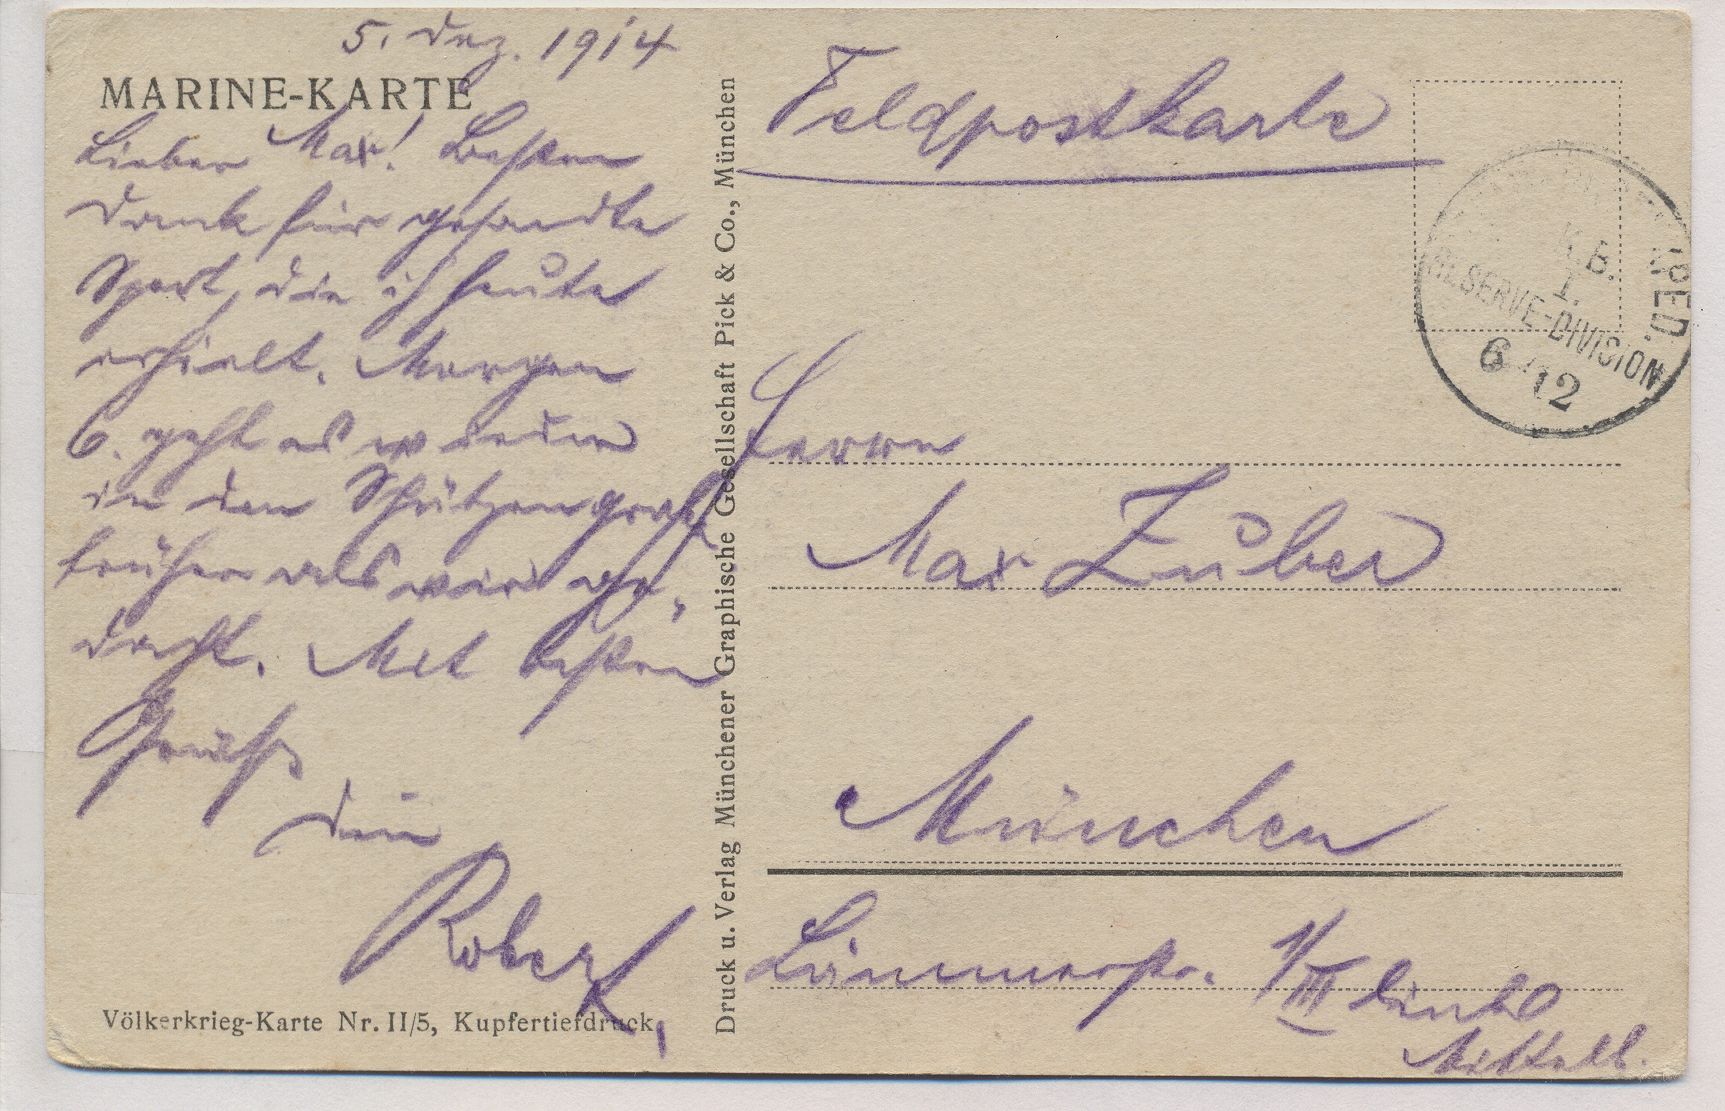 5. Dez. 1914
MARINE-KARTE
Lieber Max! Besten
Dank für gesandte
Sport, die ich heute
erhielt. Morgen
6. geht es wieder
in den Schützengrab
früher als wir ge-
dacht. Mit besten
Grüße
Dein
Robert.
Völkerkrieg-Karte Nr. II/5, Kupfertiefdruck.
Druck u. Verlag Münchener Graphische Gesellschaft Pick & Co., München
Feldpostkarte
K.B.
1.
RESERVE-DIVISION
6 12
Herrn
Max Zuber
München
1/III links
Mittelb.